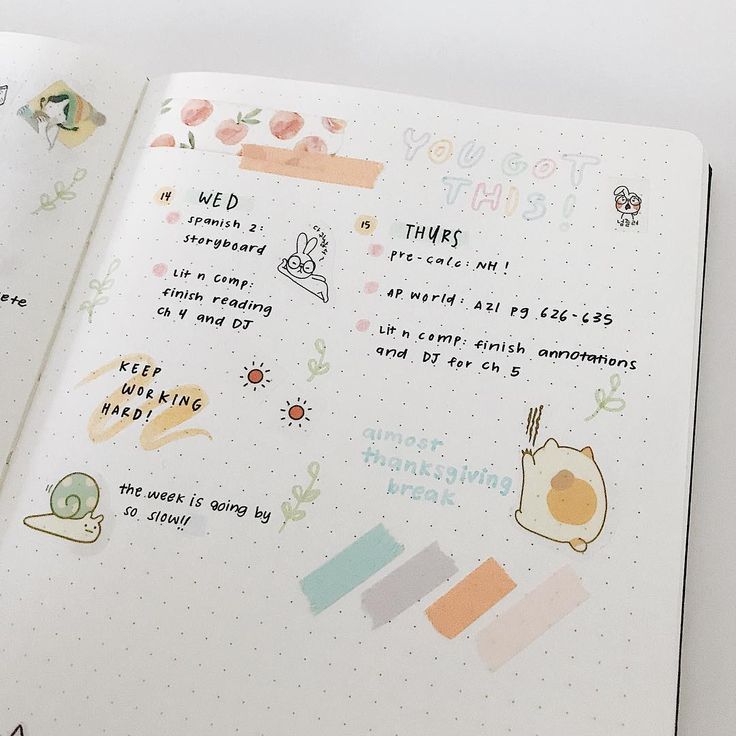 ete
YOU GOT
THIS!
14 WED
spanish 2:
storyboard
Lit n comp:
finish reading
ch 4 and DJ
KEEP
WORKING
HARD!
the week is going by
so slow!!
15 THURS
pre-calc: NH!
AP World: AZI pg 626-635
Lit n comp: finish annotations
and DJ for ch 5
almost
thanksgiving
break